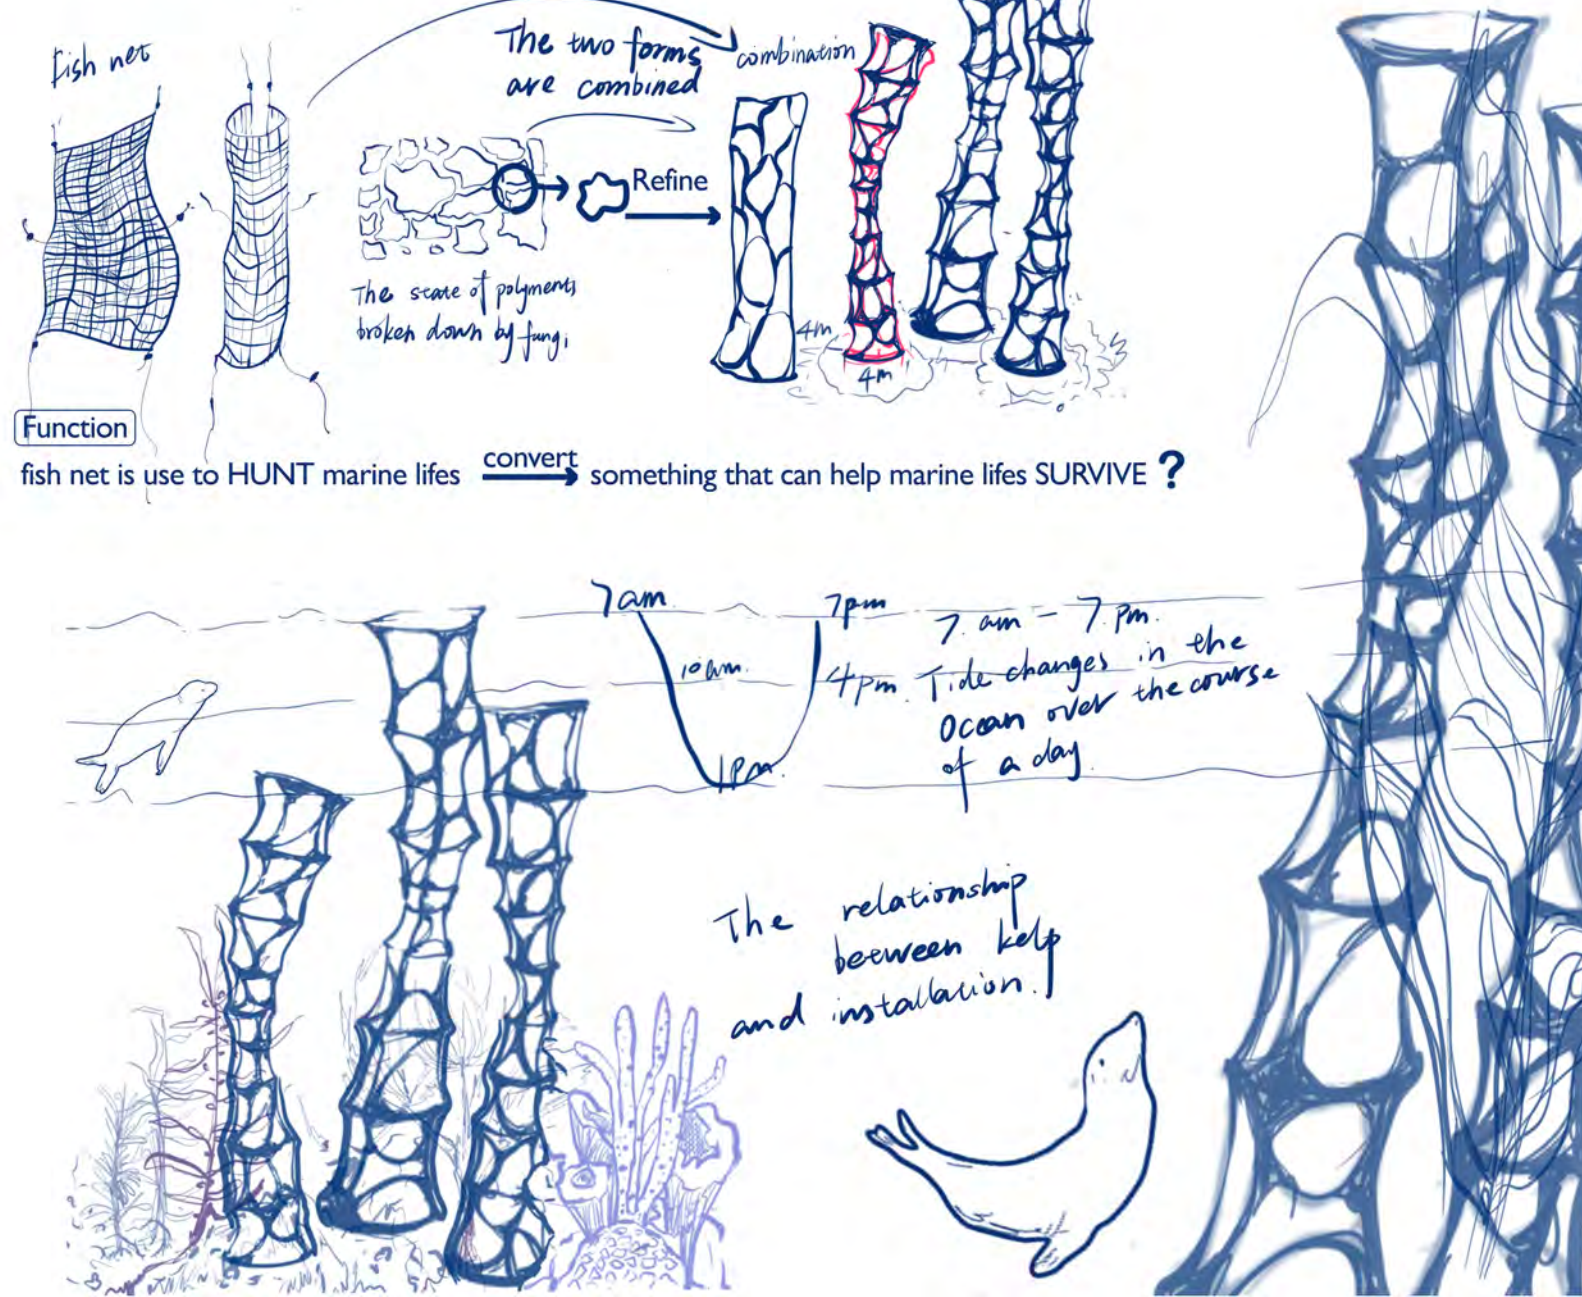 Fish net
The two forms
are combined
combination
Refine
The state of polyments
broken down by fungi
4m
4m
Function
fish net is use to HUNT marine lifes convert something that can help marine lifes SURVIVE ?
7am
7pm
10am.
4pm.
1pm.
7. am - 7. pm.
Tide changes in the
Ocean over the course
of a day.
The relationship
between kelp
and installation.